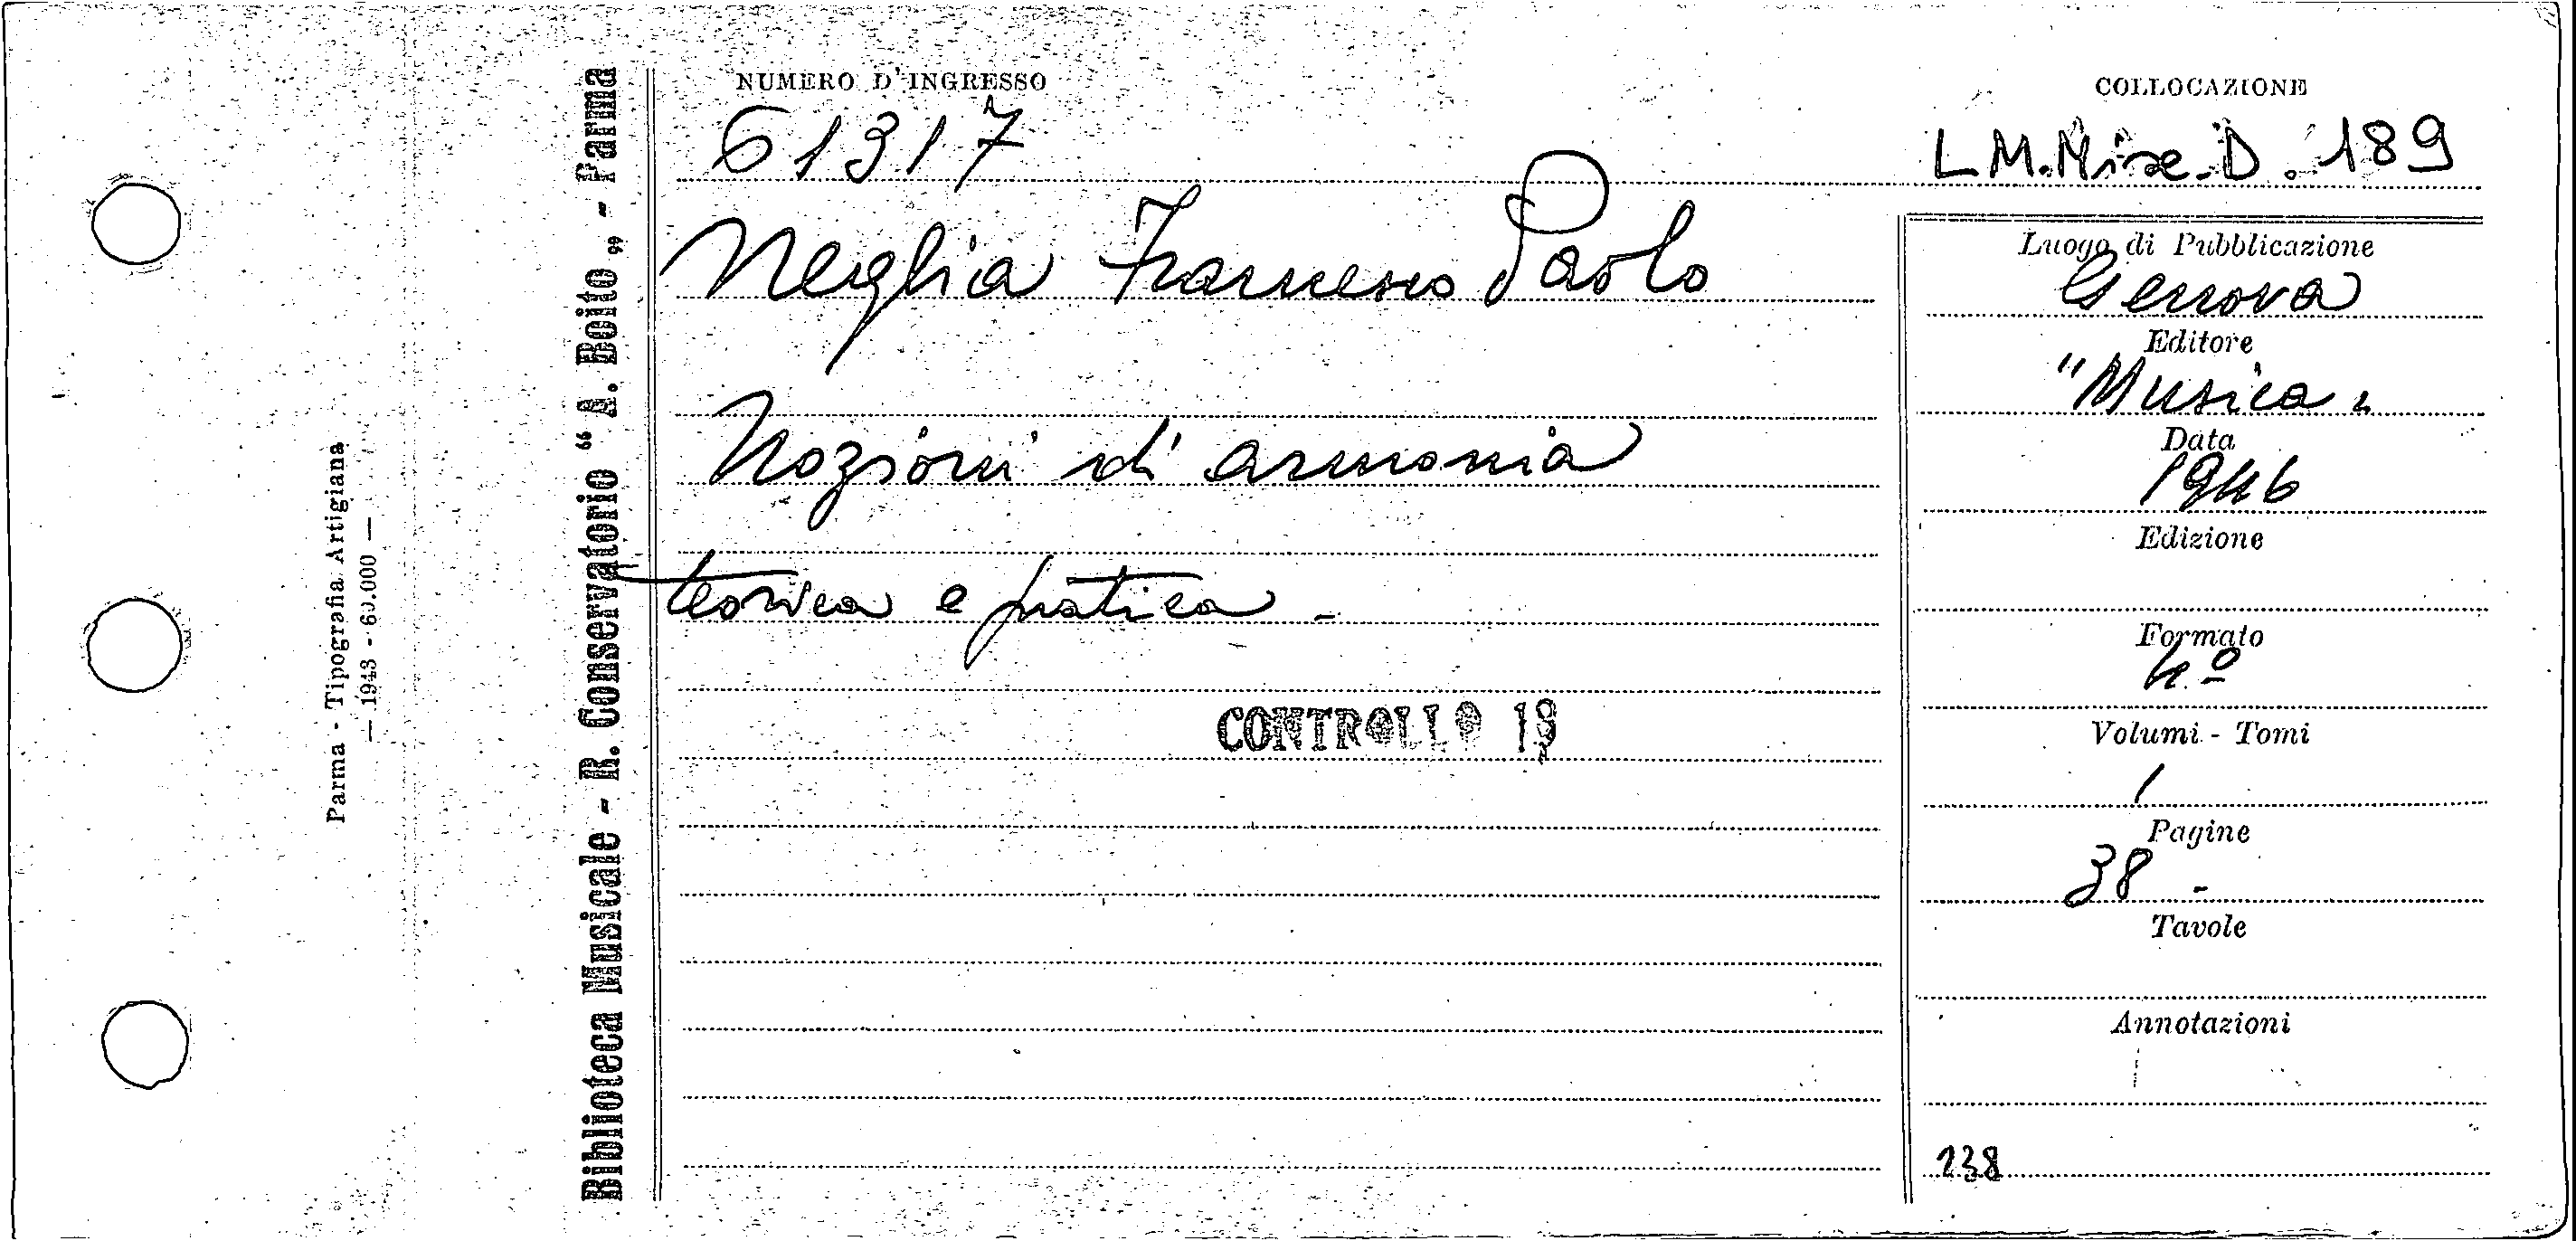 NUMERO D'INGRESSO
61317
COLLOCAZIONE
L M. Misc. D. 189
Neglia Francesco Paolo
Nozioni di armonia
teorica e pratica -
CONTROLLO 19
Luogo di Pubblicazione
Genova
Editore
"Musica„
Data
1946
Edizione
Formato
4.º
Volumi - Tomi
1
Pagine
38 -
Tavole
Annotazioni
238
Biblioteca Musicale - R. Conservatorio “ A. Boito „ - Parma
Parma - Tipografia Artigiana
— 1943 - 60.000 —